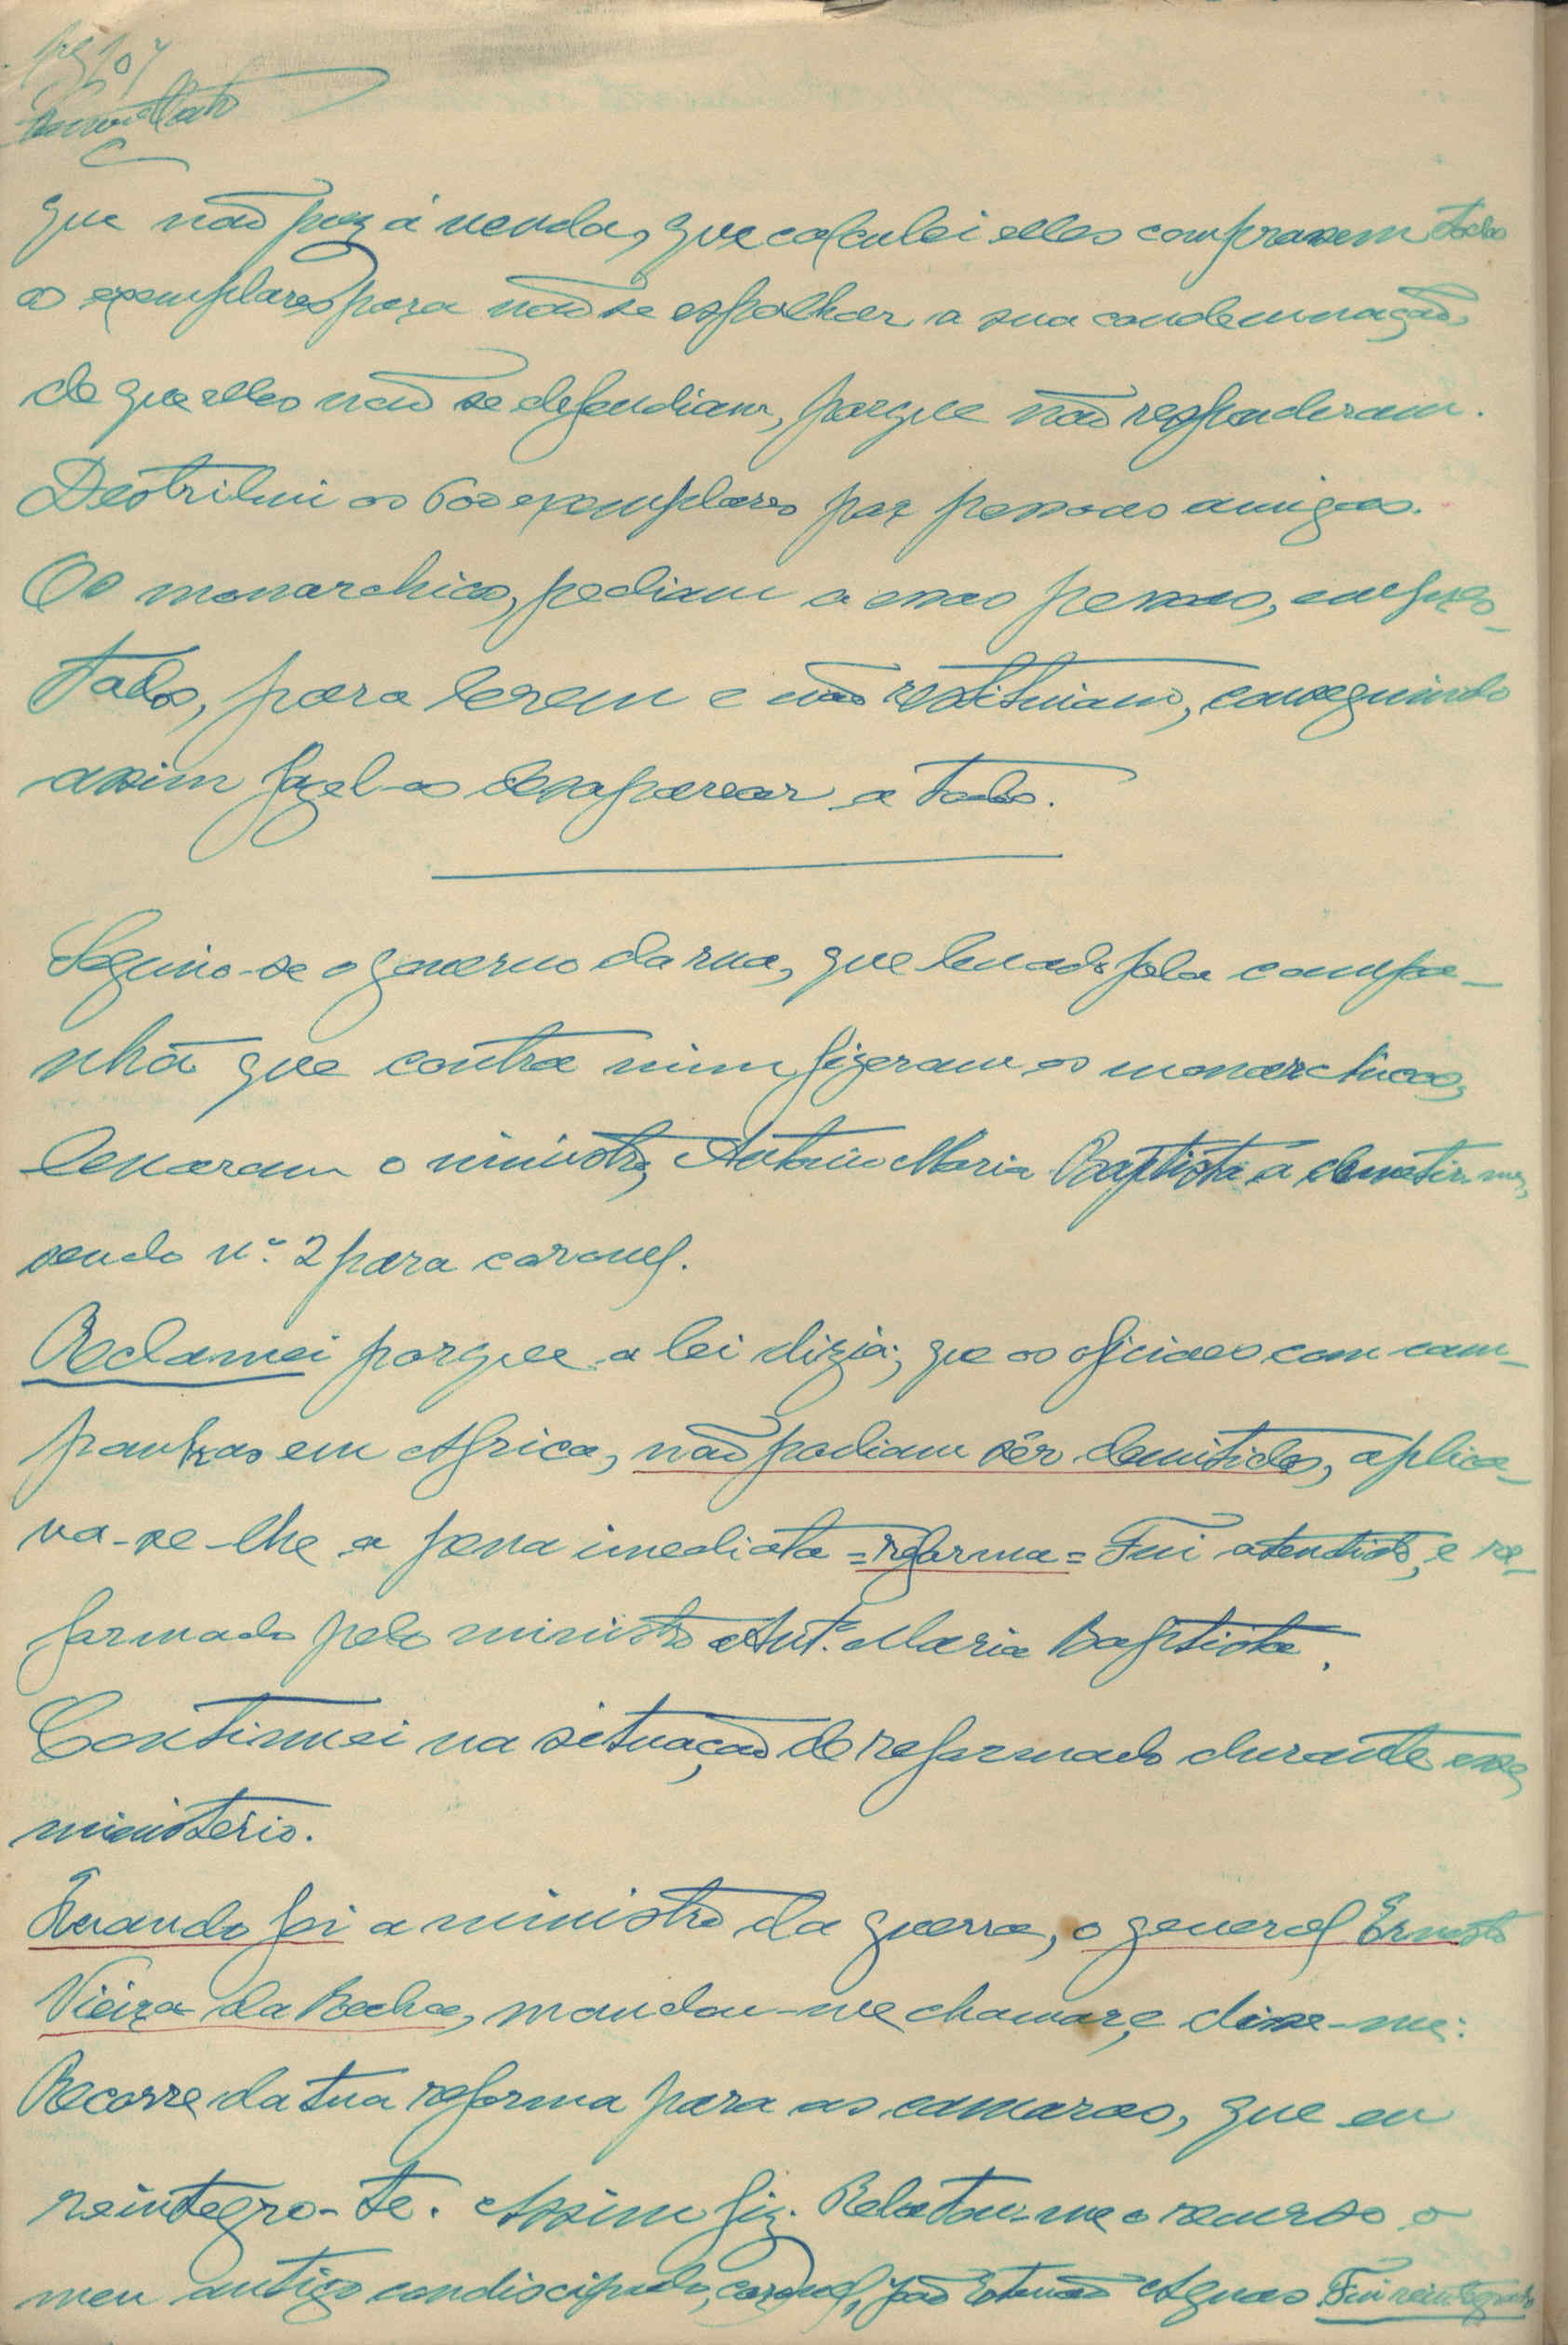 que não puz á venda, que calculei elles comprarem todos
os exemplares para não se espalhar a sua condemnação,
de que elles não se defendiam, porque não responderam.
Destribui os 600 exemplares por pessoas amigas.
Os monarchicos, pediam a essas pessoas, empres-
tados, para lerem e não restituiam, conseguindo
assim fazel-os desaparecer a todos.
Seguiu-se o governo da rua, que levado pela campa-
nha que contra mim fizeram os monarchicos,
levaram o ministro, Antonio Maria Baptista a demetir-me,
sendo nº. 2 para coronel.
Reclamei porque a lei dizia; que os oficiaes com cam-
panhas em Africa, não podiam sêr demitidos, aplica-
va-se-lhe a pena imediata =reforma= Fui atendido, e re-
formado pelo ministro Antº. Maria Baptista.
Continuei na situação de reformado durante esse
ministerio.
Quando foi a ministro da guerra, o general Ernesto
Vieira da Rocha, mandou-me chamar, e disse-me:
Recorre da tua reforma para as camaras, que eu
reintegro-te. Assim fiz. Relatou-me o recurso o
meu antigo condiscipulo, coronel, João Estevão Aguas Fui reintegrado